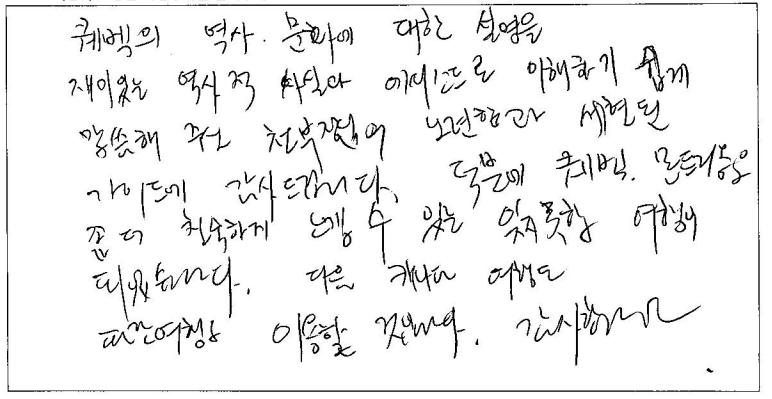 퀘벡의 역사. 문화에 대한 설명을
재미있는 역사적 사실과 에피소드로 이해하기 쉽게
말씀해 주신 천부장님의 노련함과 세련된
가이드에 감사드립니다. 덕분에 퀘벡. 몬트리올을
좀 더 친숙하게 느낄 수 있는 잊지못할 여행이
되었습니다. 다음 캐나다 여행도
이용할 것입니다. 감사합니다